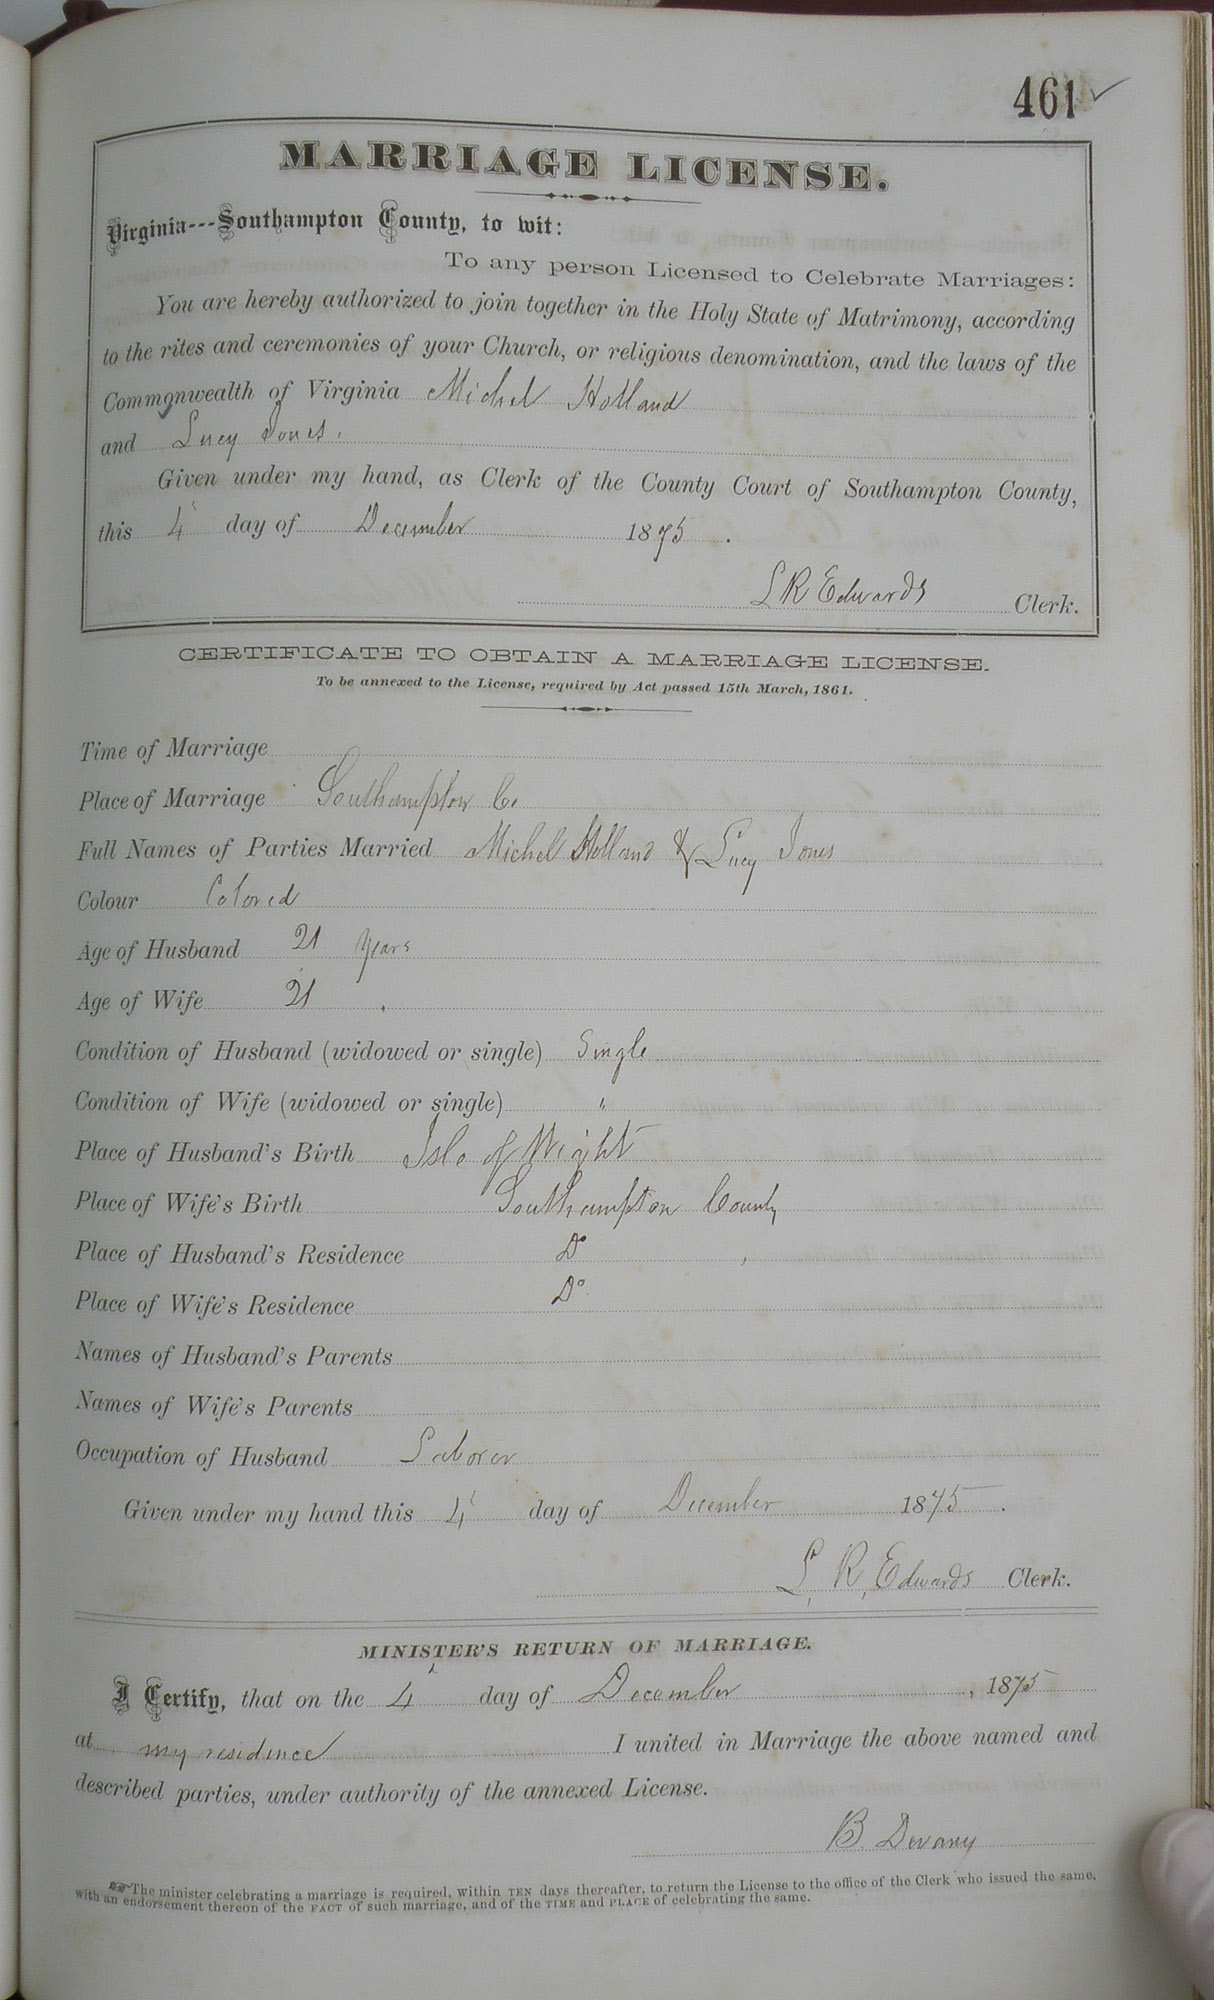 461
MARRIAGE LICENSE.
Virginia---Southampton County, to wit:
To any person Licensed to Celebrate Marriages:
You are hereby authorized to join together in the Holy State of Matrimony, according
to the rites and ceremonies of your Church, or religious denomination, and the laws of the
Commonwealth of Virginia Michel Holland
and Lucy Jones.
Given under my hand, as Clerk of the County Court of Southampton County,
this 4 day of December 1875.
L R Edwards Clerk.
CERTIFICATE TO OBTAIN A MARRIAGE LICENSE.
To be annexed to the License, required by Act passed 15th March, 1861.
Time of Marriage
Place of Marriage Southampton Co.
Full Names of Parties Married Michel Holland & Lucy Jones
Colour Colored
Age of Husband 21 Years
Age of Wife 21
Condition of Husband (widowed or single) Single
Condition of Wife (widowed or single) "
Place of Husband's Birth Isle of Wight
Place of Wife's Birth Southampton County
Place of Husband's Residence Do
Place of Wife's Residence Do
Names of Husband's Parents
Names of Wife's Parents
Occupation of Husband Laborer
Given under my hand this 4 day of December 1875.
L. R. Edwards Clerk.
MINISTER'S RETURN OF MARRIAGE.
I Certify, that on the 4 day of December, 1875
at my residence I united in Marriage the above named and
described parties, under authority of the annexed License.
B. Devany
The minister celebrating a marriage is required, within TEN days thereafter, to return the License to the office of the Clerk who issued the same,
with an endorsement thereon of the FACT of such marriage, and of the TIME and PLACE of celebrating the same.